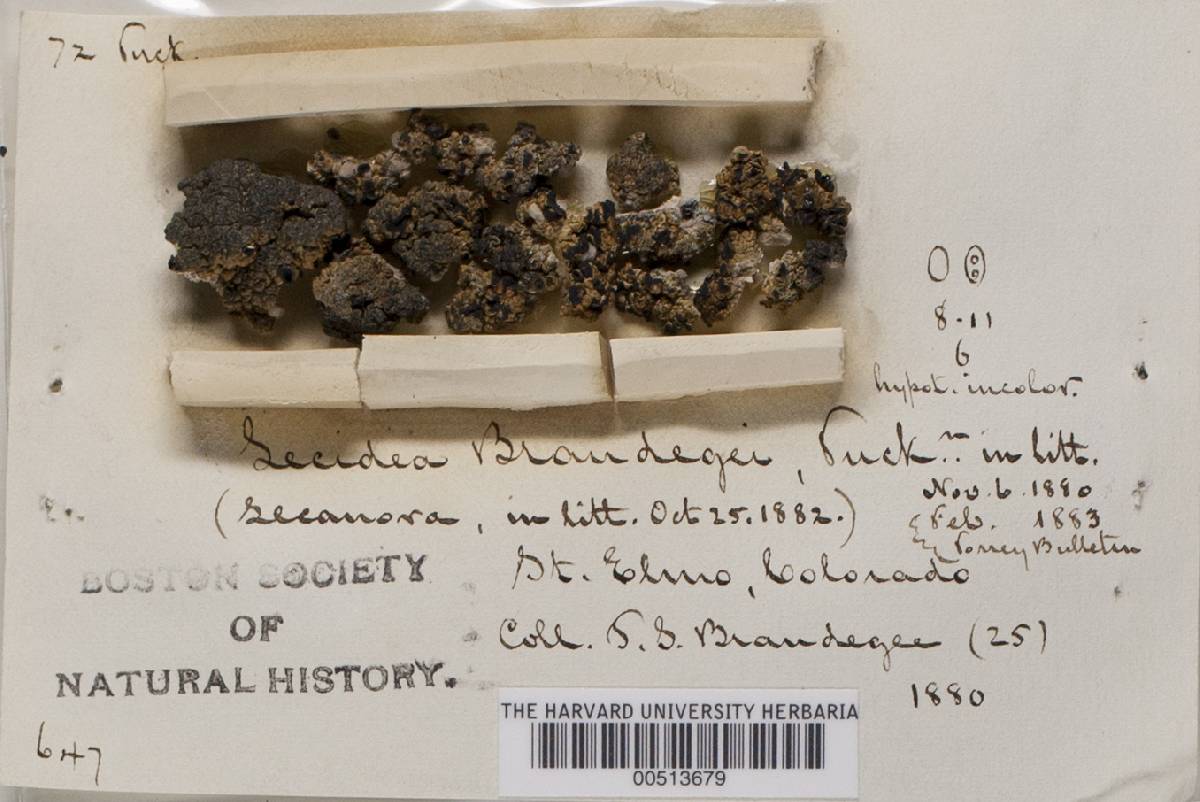 72 Tuck.
8-11
6
hypot. incolor.
Lecidea Brandegei, Tuckᵐ. in litt.
Nov. 6. 1880
& Feb. 1883
& Torrey Bulletin
(Lecanora, in litt. Oct 25. 1882.)
St. Elmo, Colorado
Coll. T. S. Brandegee (25)
1880
BOSTON SOCIETY
OF
NATURAL HISTORY.
647
THE HARVARD UNIVERSITY HERBARIA
00513679